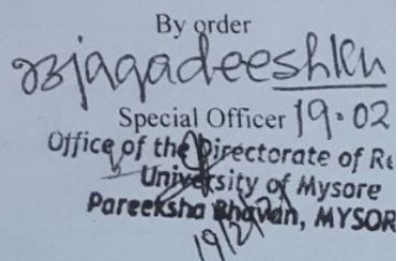 By order
Special Officer 19.02
Office of the Directorate of Re
University of Mysore
Pareeksha Bhavan, MYSOR
19/2/21